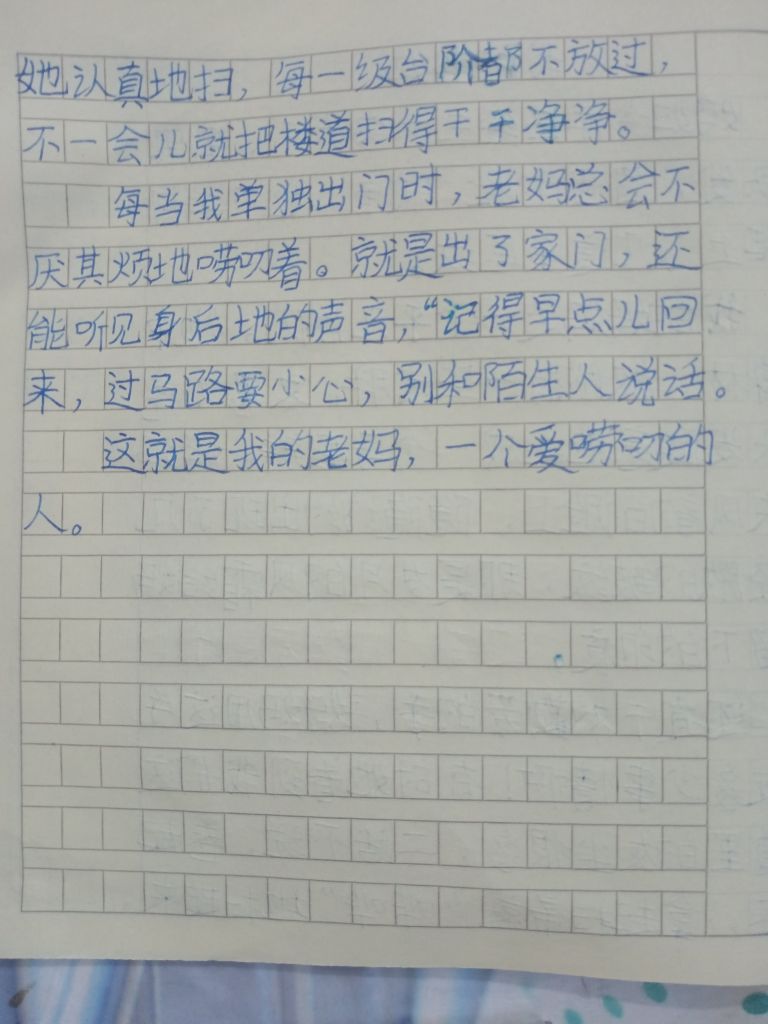 她认真地扫，每一级台阶都不放过，
不一会儿就把楼道扫得干干净净。
每当我单独出门时，老妈总会不
厌其烦地唠叨着。就是出了家门，还
能听见身后地的声音，“记得早点儿回
来，过马路要小心，别和陌生人说话。
这就是我的老妈，一个爱唠叨的
人。